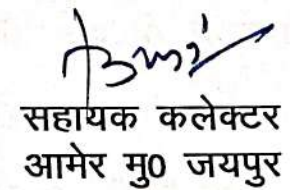 सहायक कलेक्टर
आमेर मु0 जयपुर